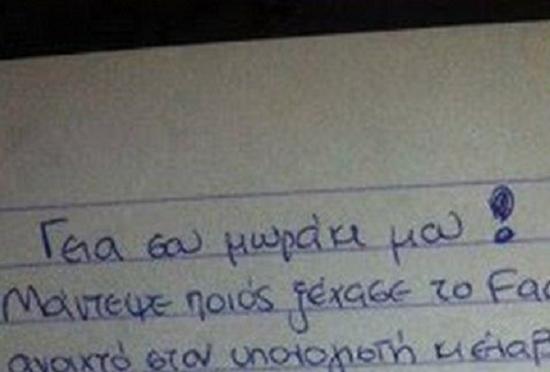 Γεια σου μωράκι μου!
Μάντεψε ποιός ξέχασε το Fac
ανοιχτό στον υπολογιστή